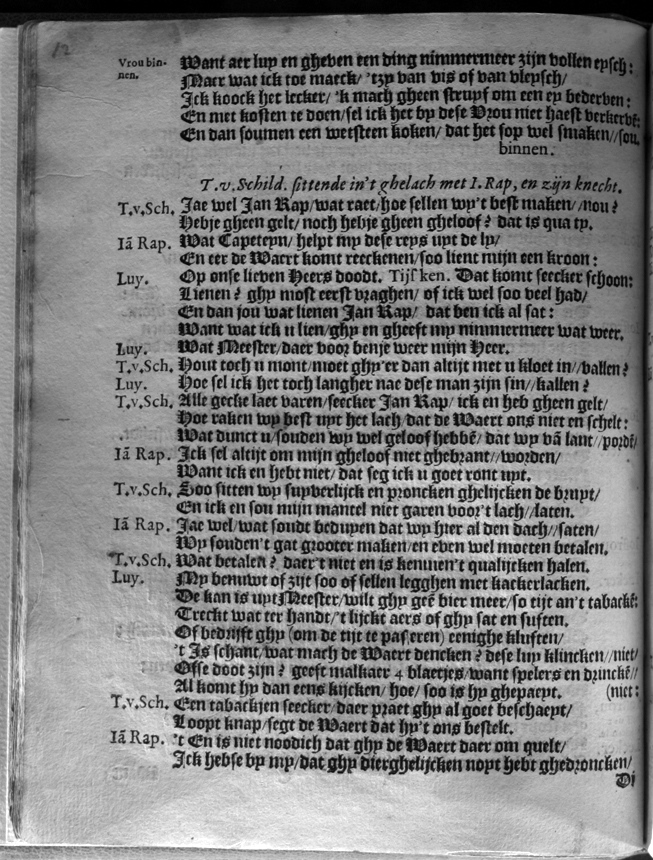 12
Vrou bin- Want aer luy en gheven een ding nimmermeer zijn vollen eysch:
nen. Maer wat ick toe maeck/ 'tzy van vis of van vleysch/
Ick koock het lecker/ 'k mach gheen struyf om een ey bederven:
En met kosten te doen/sel ick het by dese Vrou niet haest verkervē:
En dan soumen een wetsteen koken/ dat het sop wel smaken//sou.
binnen.
T.v.Schild. sittende in't ghelach met I. Rap, en zijn knecht.
T.v.Sch. Jae wel Jan Rap/wat raet/hoe sellen wy't best maken//nou?
Hebje gheen gelt/ noch hebje gheen gheloof? dat is qua ty.
Iā Rap. Wat Capeteyn/ helpt my dese reys uyt de ly/
En eer de Waert komt reeckenen/soo lient mijn een kroon:
Luy. Op onse lieven Heers doodt. Tijs ken. Dat komt seecker schoon:
Lienen? ghy most eerst vraghen/ of ick wel soo veel had/
En dan jou wat lienen Jan Rap/ dat ben ick al sat:
Want wat ick u lien/ghy en gheeft my nimmermeer wat weer.
Luy. Wat Meester/daer voor benje weer mijn Heer.
T.v.Sch. Hout toch u mont/moet ghy'er dan altijt met u kloet in//vallen?
Luy. Hoe sel ick het toch langher nae dese man zijn sin//kallen?
T.v.Sch. Alle gecke laet varen/seecker Jan Rap/ ick en heb gheen gelt/
Hoe raken wy best uyt het lach/dat de Waert ons niet en schelt:
Wat dunct u/souden wy wel geloof hebbē/ dat wy vā lant//pordē/
Iā Rap. Ick sel altijt om mijn gheloof niet ghebrant//worden/
Want ick en hebt niet/ dat seg ick u goet ront uyt.
T.v.Sch. Soo sitten wy suyverlijck en proncken ghelijcken de bruyt/
En ick en sou mijn mantel niet garen voor't lach//laten.
Iā Rap. Jae wel/wat soudt beduyen dat wy hier al den dach//saten/
Wy souden't gat grooter maken/en even wel moeten betalen.
T.v.Sch. Wat betalen? daer't niet en is kenmen't qualijcken halen.
Luy. My benuwt of zijt soo of sellen legghen met kackerlacken.
De kan is uyt Meester/wilt ghy geē bier meer/so tijt an't tabackē:
Treckt wat ter handt/'t lijckt aers of ghy sat en suften.
Of bedrijft ghy (om de tijt te passeren) eenighe kluften/
't Is schant/wat mach de Waert dencken? dese luy klincken//niet/
Offe doot zijn? geeft malkaer 4 blaetjes/want spelers en drinckē//
Al komt hy dan eens kijcken/ hoe/ soo is hy ghepaeyt. (niet:
T.v.Sch. Een tabackjen seecker/daer praet ghy al goet beschaeyt/
Loopt knap/segt de Waert dat hy't ons bestelt.
Iā Rap. 't En is niet noodich dat ghy de Waert daer om quelt/
Ick hebse by my/dat ghy dierghelijcken noyt hebt ghedroncken/
Di